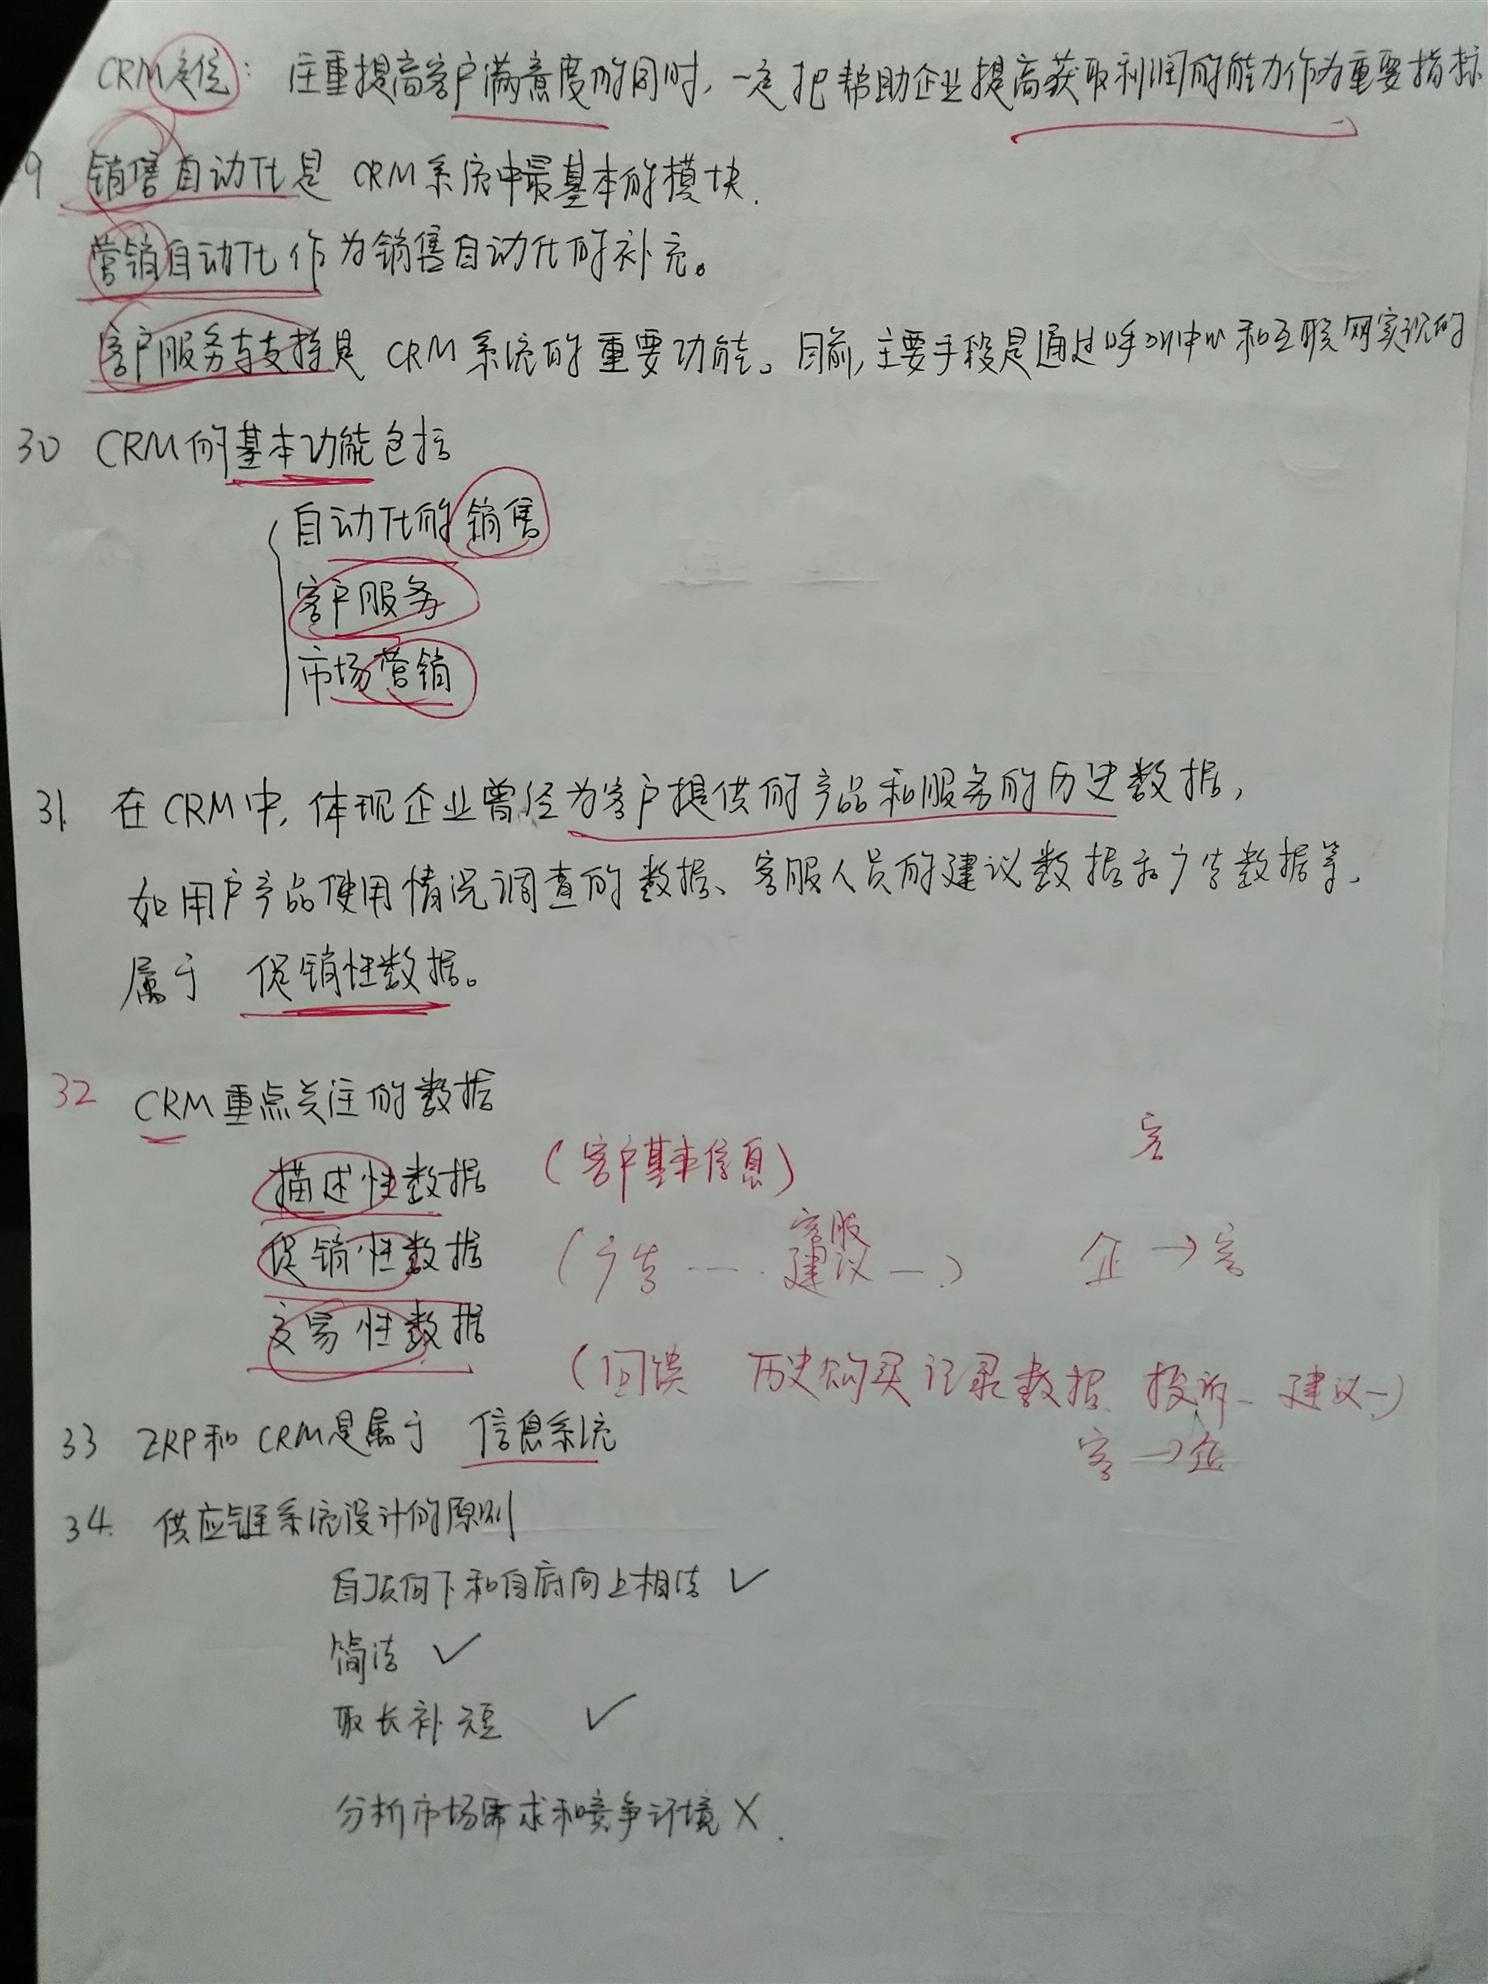 CRM定位：注重提高客户满意度的同时，一定把帮助企业提高获取利润的能力作为重要指标
9 销售自动化是 CRM系统中最基本的模块.
营销自动化作为销售自动化的补充。
客户服务与支持是 CRM系统的重要功能。目前,主要手段是通过呼叫中心和互联网实现的
30 CRM的基本功能包括
自动化的销售
客户服务
市场营销
31 在CRM中, 体现企业曾经为客户提供的产品和服务的历史数据,
如用户产品使用情况调查的数据、客服人员的建议数据和广告数据等,
属于 促销性数据。
32 CRM重点关注的数据
客
描述性数据 (客户基本信息)
客服
促销性数据 (广告……建议—) 企→客
交易性数据 (回馈 历史购买记录数据 投诉—建议—)
33 ZRP和CRM是属于 信息系统 客→企
34. 供应链系统设计的原则
自顶向下和自底向上相结 ✓
简洁 ✓
取长补短 ✓
分析市场需求和竞争环境 X.